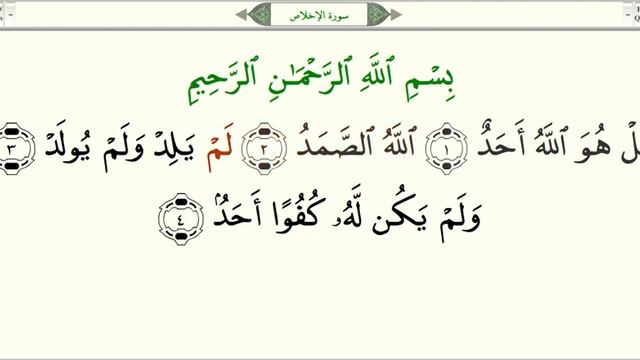 سورة الإخلاص
بِسْمِ ٱللَّهِ ٱلرَّحْمَـٰنِ ٱلرَّحِيمِ
هُوَ ٱللَّهُ أَحَدٌ ١ ٱللَّهُ ٱلصَّمَدُ ٢ لَمْ يَلِدْ وَلَمْ يُولَدْ ٣
وَلَمْ يَكُن لَّهُۥ كُفُوًا أَحَدٌۢ ٤